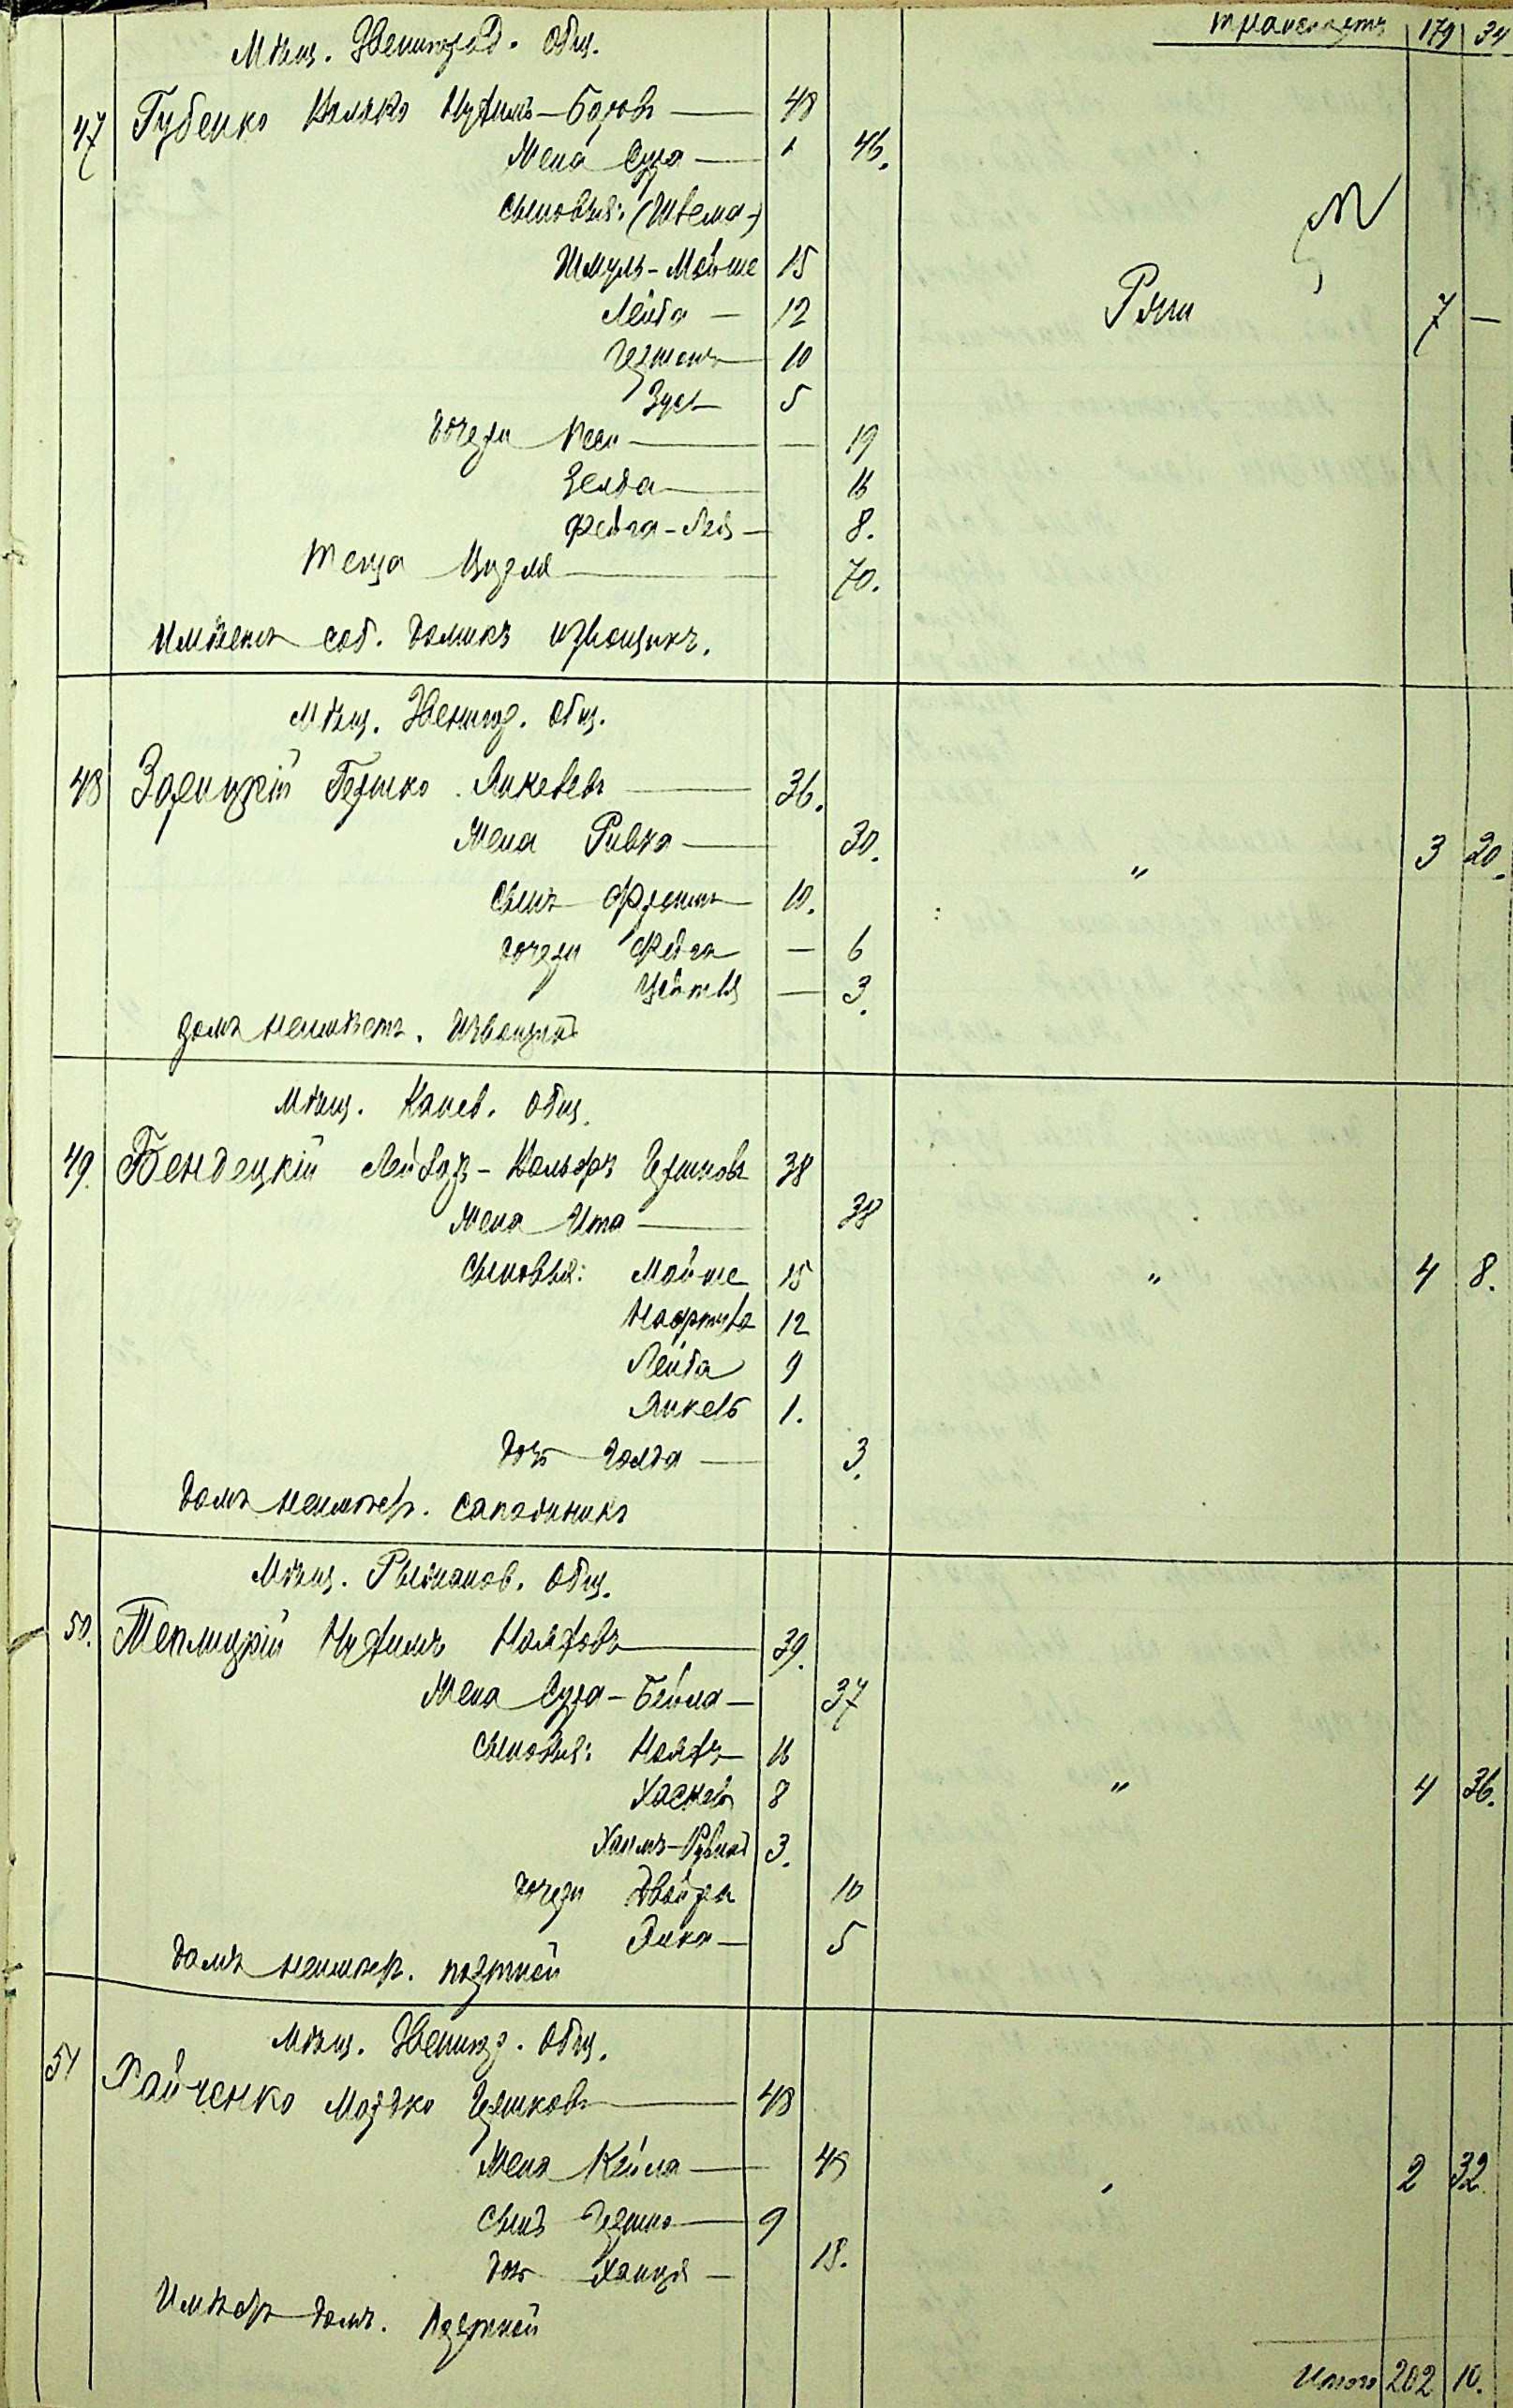 транспортъ 179 34
Мѣщ. Звенигород. общ.
47 Губенко Нухимъ 48
Жена Сура 46.
сыновья:
Шмуль-Мойше 15
Лейба 12
Гершонъ 10
Зусь 5
дочери Песи — 19
Зелда 16
Фейга-Лея 8.
Теща 70.
7 —
Имѣетъ соб. домикъ извощикъ.
Мѣщ. Звениг. общ.
48 Зарицкій Гершко Янкелевъ 36.
Жена Ривка 30.
" 3 20.
Сынъ Фроимъ 10.
дочери Фейга — 6
Цейтля — 3.
домъ неимѣетъ. Извощикъ
Мѣщ. Канев. общ.
49. Бендецкій Лейзоръ-Вольфъ Гершковъ 38
Жена Ита 38
Сыновья: Мойше 15
" 4 8.
Нафтула 12
Лейба 9
Янкель 1.
дочь Голда 3.
домъ неимѣетъ. сапожникъ
Мѣщ. Рыжанов. общ.
50. Теплицкій Нухимъ 39.
Жена Сура-Бейла 37
сыновья: 16
Хаскель 8
" 4 36.
Хаимъ-Рувинъ 3.
дочери Двойра 10
Элка 5
домъ неимѣетъ. портной
Мѣщ. Звениг. общ.
51 Хайченко Мордко Гершковъ 48
Жена Кейла 48
" 2 32.
сынъ Гершко 9
дочь Ханця 18.
Имѣетъ домъ. портной
Итого 202 10.